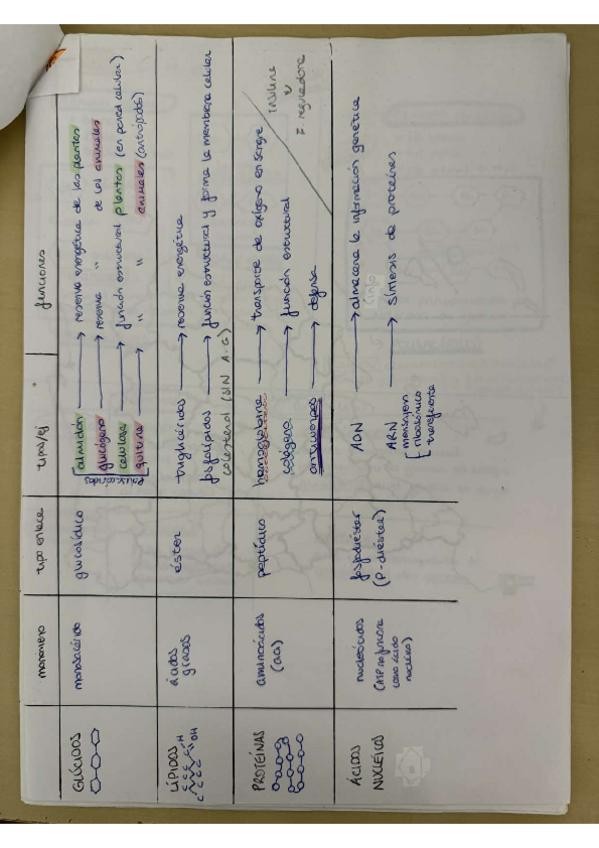 monómero tipo enlace tipos/ej funciones
GLÚCIDOS
monosacárido
glucosídico
polisacáridos
almidón → reserva energética de las plantas
glucógeno → reserva " de los animales
celulosa → función estructural plantas (en pared celular)
quitina → " " animales (artrópodos)
LÍPIDOS
C C C C H
OH
ácidos
grasos
éster
triglicéridos → reserva energética
fosfolípidos → función estructural y forma la membrana celular
colesterol (SIN A.G)
PROTEÍNAS
aminoácidos
(aa)
peptídico
hemoglobina → transporte de oxígeno en sangre
colágeno → función estructural
anticuerpos → defensa
insulina
F. reguladora
ÁCIDOS
NUCLEICOS
nucleótidos
(ATP no funciona
como ácido
nucleico)
fosfodiéster
(P-diéster)
ADN → almacena la información genética
(info)
ARN → síntesis de proteínas
mensajero
ribosómico
transferente